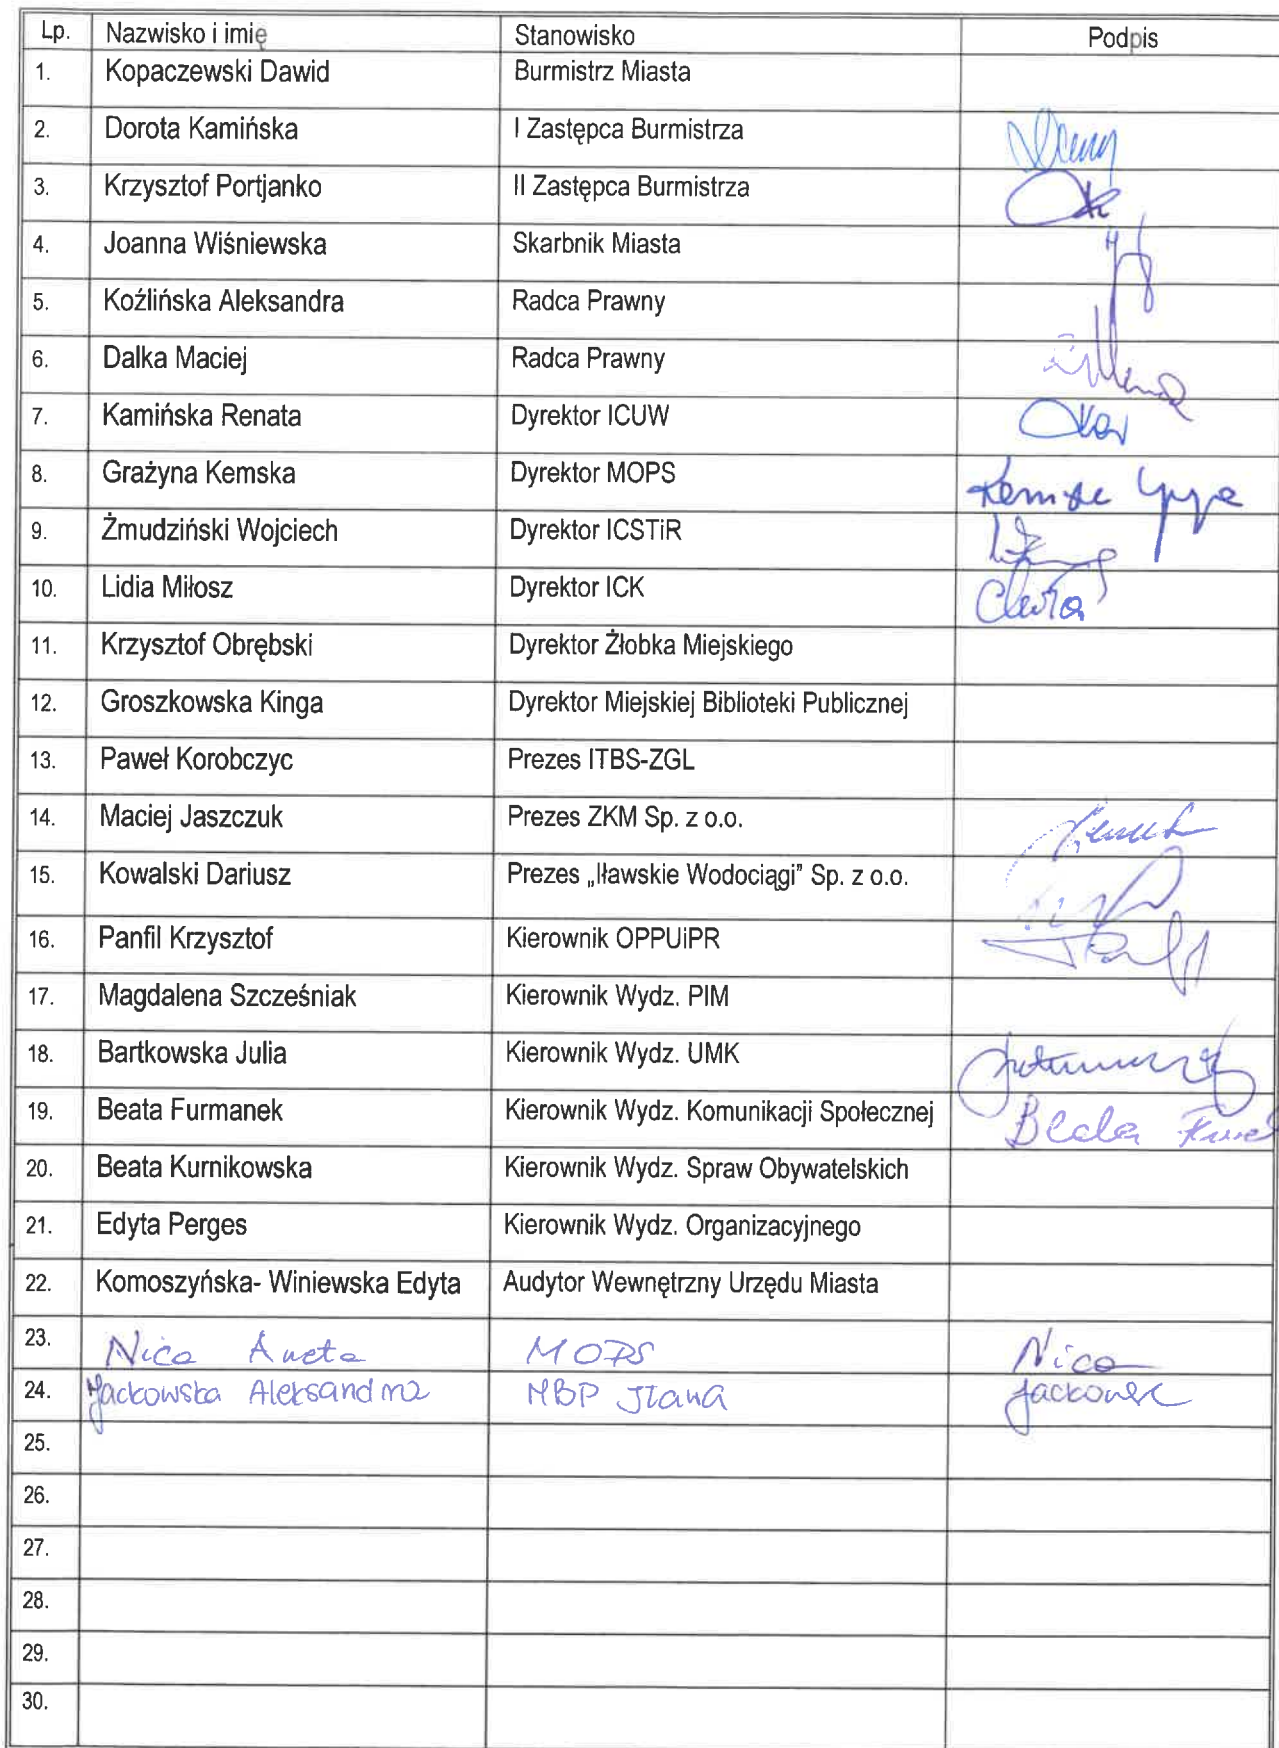 Lp. Nazwisko i imię Stanowisko Podpis
1. Kopaczewski Dawid Burmistrz Miasta
2. Dorota Kamińska I Zastępca Burmistrza
3. Krzysztof Portjanko II Zastępca Burmistrza
4. Joanna Wiśniewska Skarbnik Miasta
5. Koźlińska Aleksandra Radca Prawny
6. Dalka Maciej Radca Prawny
7. Kamińska Renata Dyrektor ICUW
8. Grażyna Kemska Dyrektor MOPS
9. Żmudziński Wojciech Dyrektor ICSTiR
10. Lidia Miłosz Dyrektor ICK
11. Krzysztof Obrębski Dyrektor Żłobka Miejskiego
12. Groszkowska Kinga Dyrektor Miejskiej Biblioteki Publicznej
13. Paweł Korobczyc Prezes ITBS-ZGL
14. Maciej Jaszczuk Prezes ZKM Sp. z o.o.
15. Kowalski Dariusz Prezes „Iławskie Wodociągi” Sp. z o.o.
16. Panfil Krzysztof Kierownik OPPUiPR
17. Magdalena Szcześniak Kierownik Wydz. PIM
18. Bartkowska Julia Kierownik Wydz. UMK
19. Beata Furmanek Kierownik Wydz. Komunikacji Społecznej Beata
20. Beata Kurnikowska Kierownik Wydz. Spraw Obywatelskich
21. Edyta Perges Kierownik Wydz. Organizacyjnego
22. Komoszyńska- Winiewska Edyta Audytor Wewnętrzny Urzędu Miasta
23. Nica Aneta MOPS Nica
24. Jackowska Aleksandra MBP Iława
25.
26.
27.
28.
29.
30.